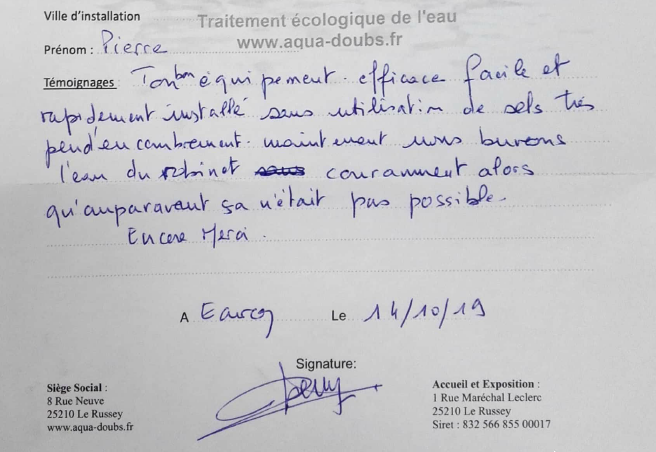 Ville d'installation
Traitement écologique de l'eau
www.aqua-doubs.fr
Prénom : Pierre
Témoignages Ton bon équipement. efficace facile et
rapidement installé sans utilisation de sels très
peu d'encombrement. maintenent nous buvons
l'eau du robinet couramment alors
qu'auparavent sa n'était pas possible.
Encore Merci.
A Le 14/10/19
Signature:
Siège Social :
8 Rue Neuve
25210 Le Russey
www.aqua-doubs.fr
Accueil et Exposition :
1 Rue Maréchal Leclerc
25210 Le Russey
Siret : 832 566 855 00017